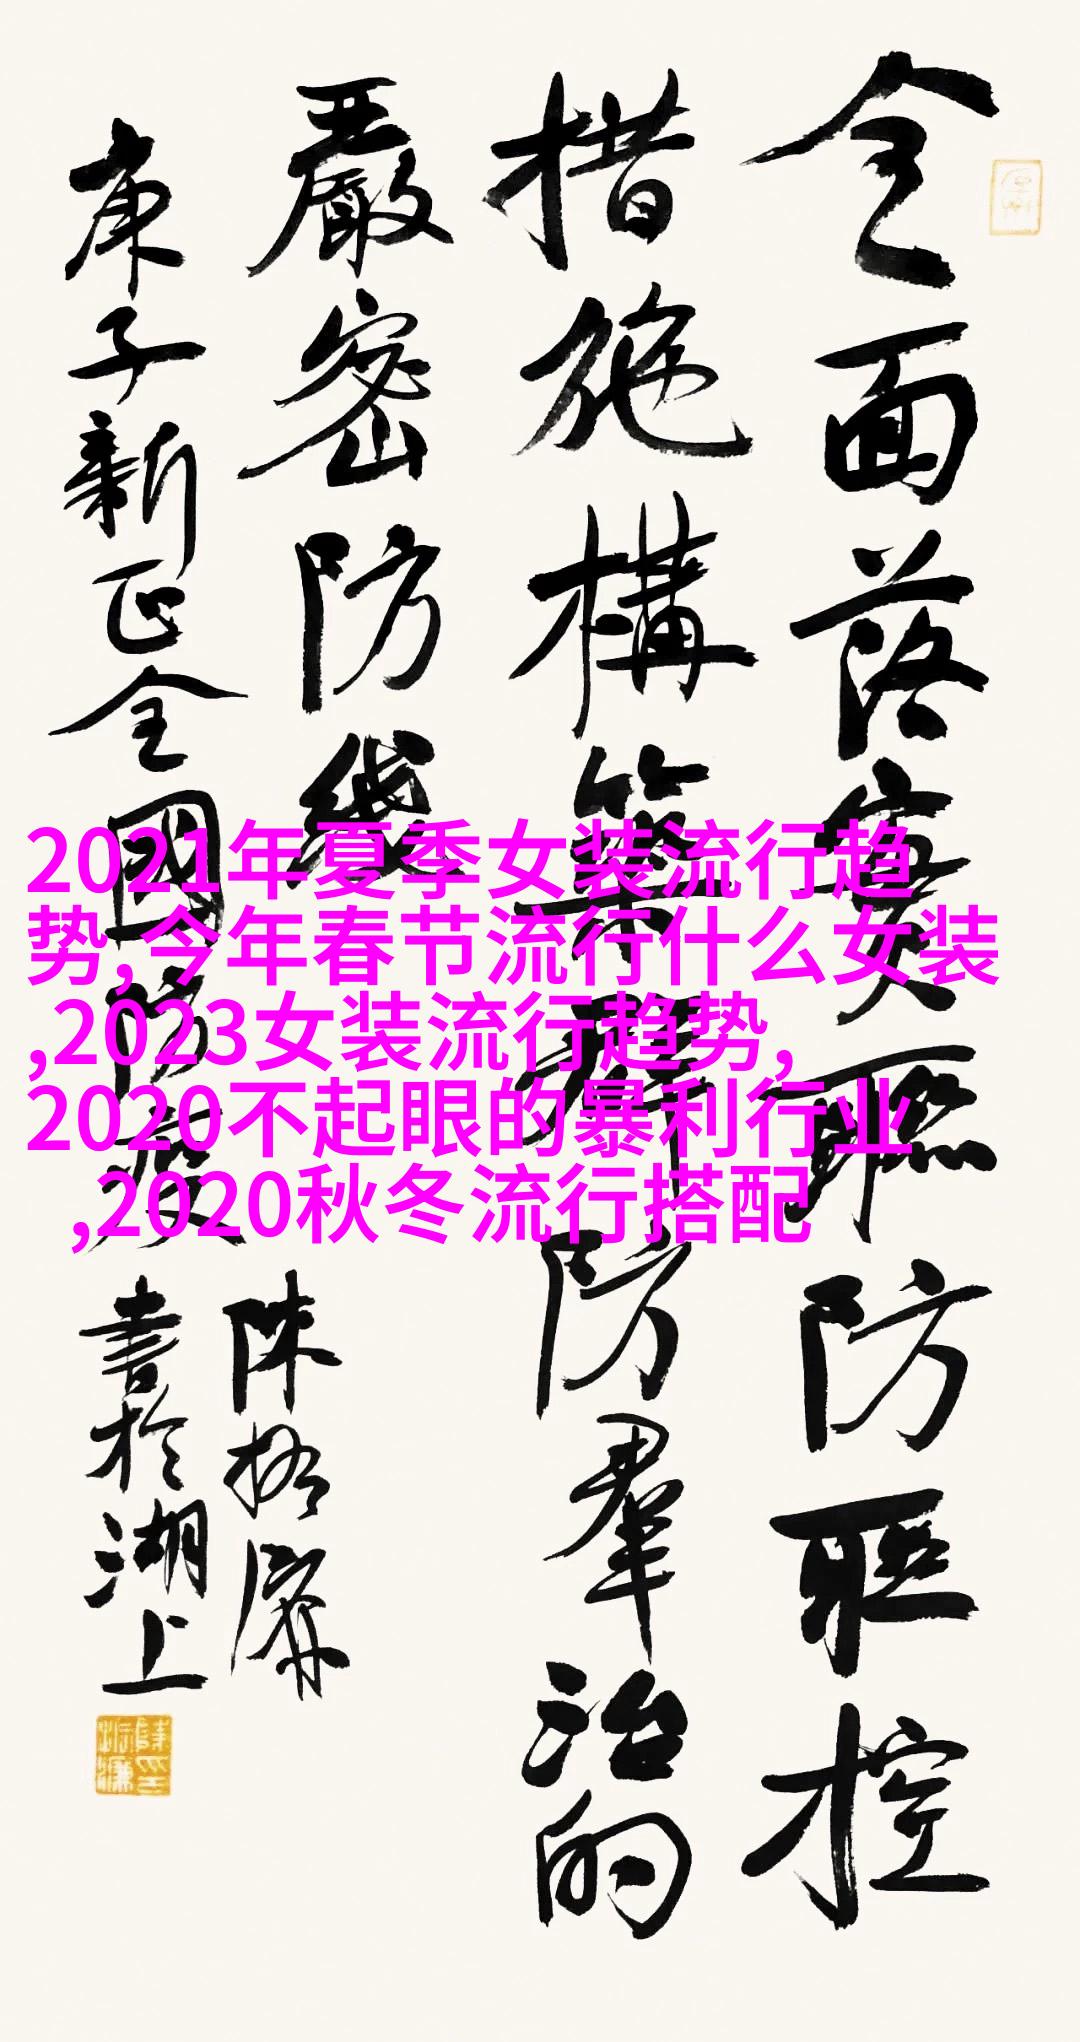 全面落實聯防聯控
措施構築群防羣治的
嚴密防綫
庚子新正全國防疫
陳振濂
書於湖上
2021年夏季女装流行趋
势,今年春节流行什么女装
,2023女装流行趋势,
2020不起眼的暴利行业
,2020秋冬流行搭配